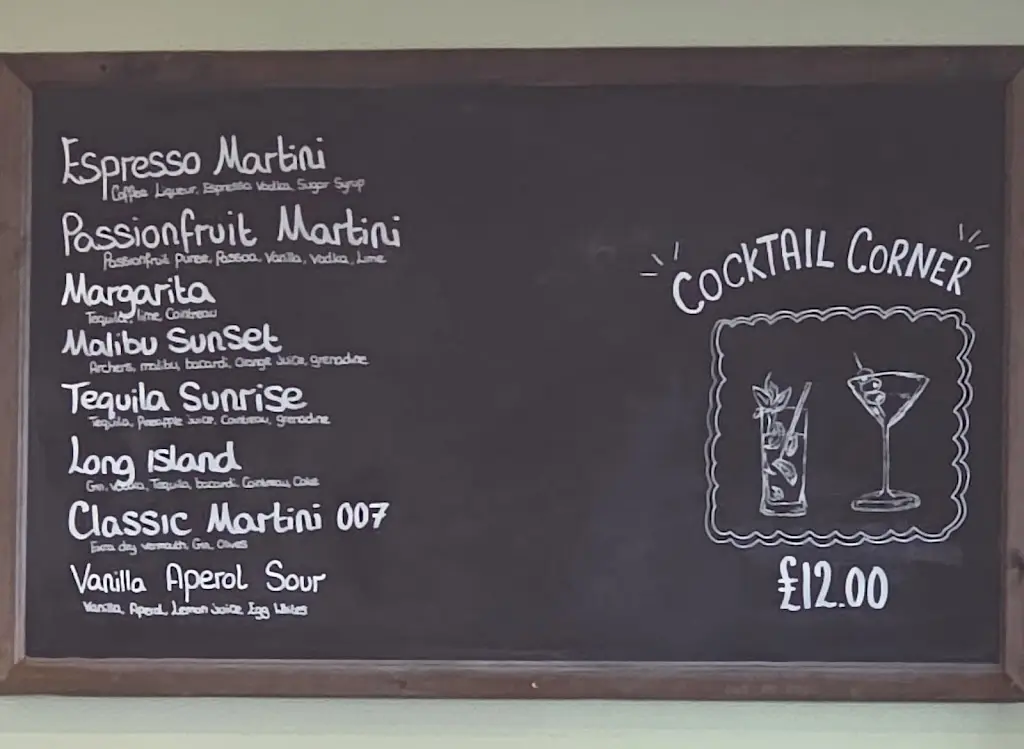 Espresso Martini
Coffee Liqueur, Espresso Vodka, Sugar Syrup
Passionfruit Martini
Passionfruit puree, Passoa, Vanilla, Vodka, Lime
Margarita
Tequila, lime, Cointreau
Malibu Sunset
Archers, malibu, bacardi, Orange Juice, grenadine
Tequila Sunrise
Tequila, Pineapple Juice, Cointreau, grenadine
Long Island
Gin, vodka, Tequila, bacardi, Cointreau, Coke
Classic Martini 007
Extra dry vermouth, Gin, Olives
Vanilla Aperol Sour
Vanilla, Aperol, Lemon Juice, Egg Whites
COCKTAIL CORNER
£12.00